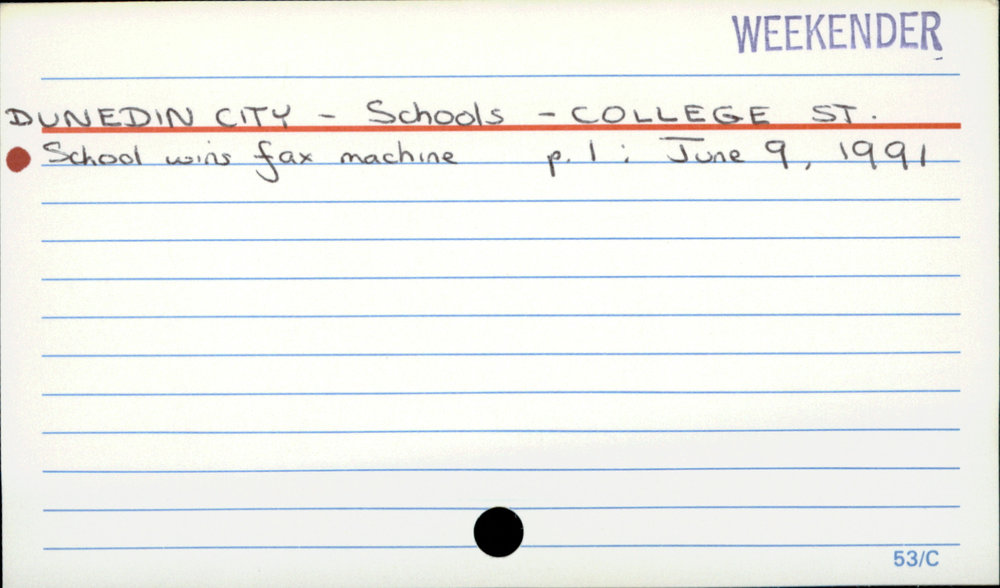 WEEKENDER
DUNEDIN CITY - Schools - COLLEGE ST.
School wins fax machine p. 1 : June 9, 1991
53/C